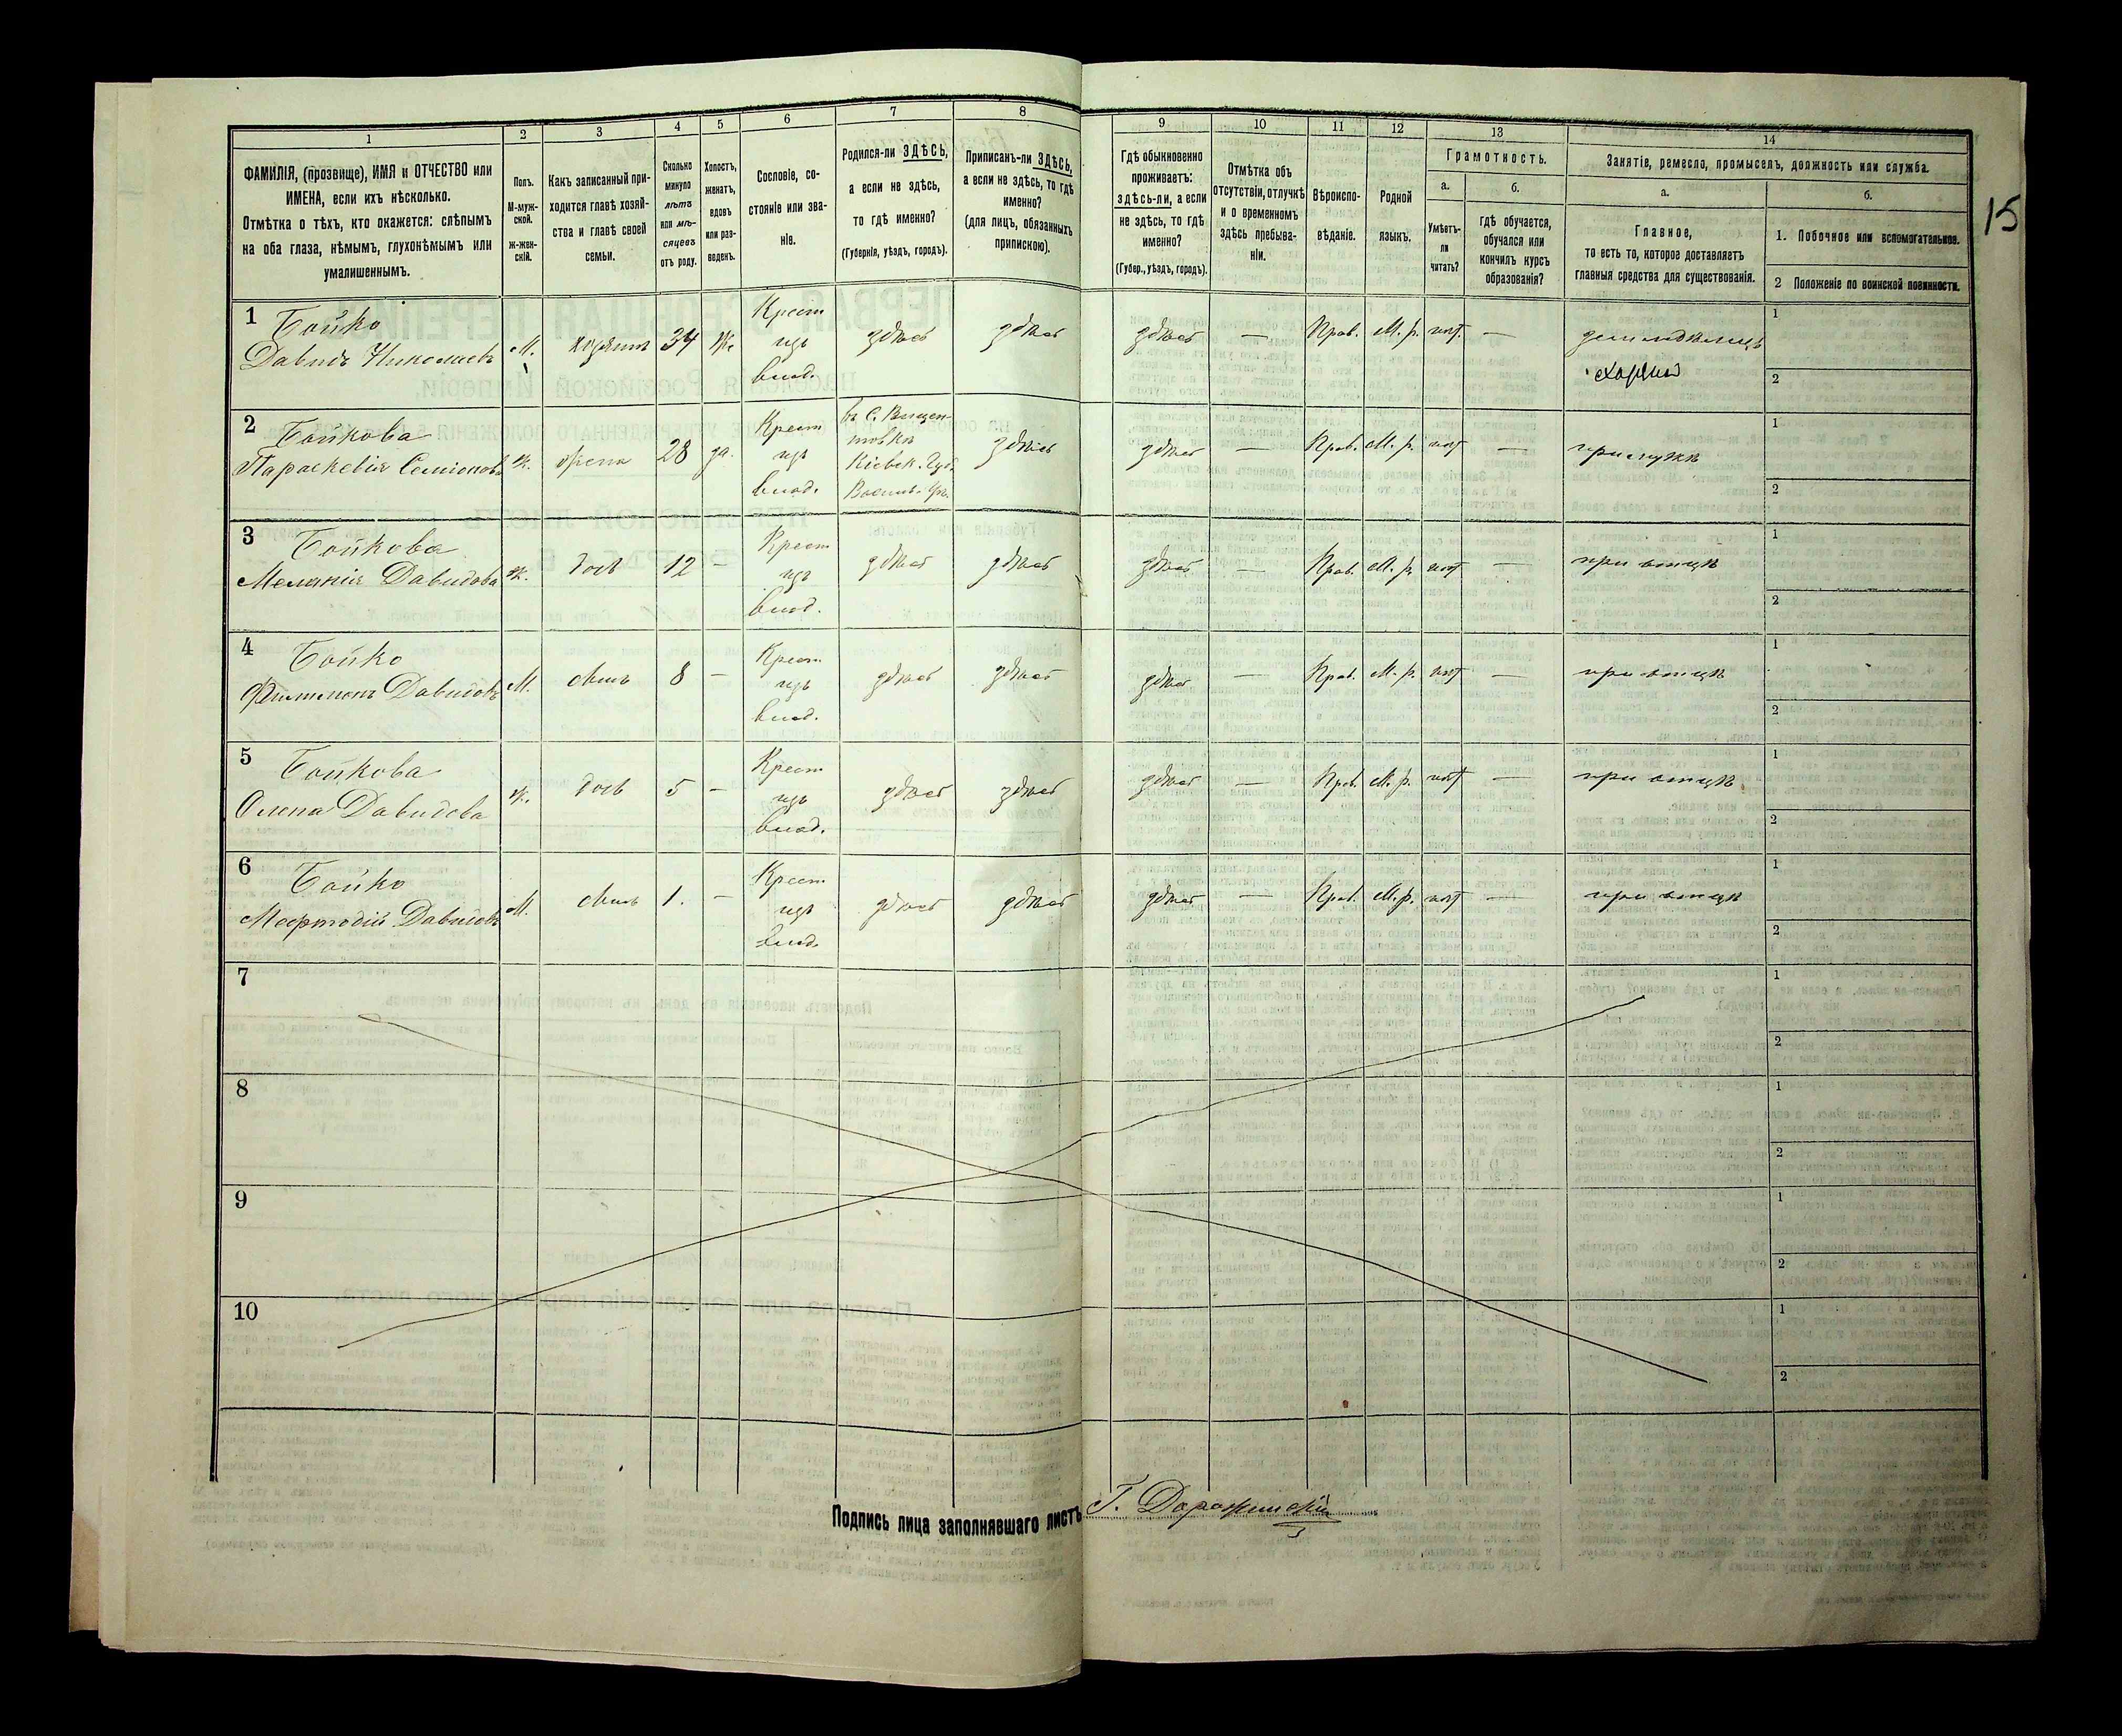 15
1
2
3
4
5
6
7
8
9
10
11
12
13
14
ФАМИЛІЯ, (прозвище), ИМЯ и ОТЧЕСТВО или
ИМЕНА, если ихъ нѣсколько.
Отмѣтка о тѣхъ, кто окажется: слѣпымъ
на оба глаза, нѣмымъ, глухонѣмымъ или
умалишеннымъ.
Полъ.
М-муж-
ской.
ж-жен-
скій.
Какъ записанный при-
ходится главѣ хозяй-
ства и главѣ своей
семьи.
Сколько
минуло
лѣтъ
или мѣ-
сяцевъ
отъ роду.
Холостъ,
женатъ,
вдовъ
или раз-
веденъ.
Сословіе, со-
стояніе или зва-
ніе.
Родился-ли ЗДѢСЬ,
а если не здѣсь,
то гдѣ именно?
(Губернія, уѣздъ, городъ).
Приписанъ-ли ЗДѢСЬ,
а если не здѣсь, то гдѣ
именно?
(для лицъ, обязанныхъ
припискою).
Гдѣ обыкновенно
проживаетъ:
здѣсь-ли, а если
не здѣсь, то гдѣ
именно?
(Губер., уѣздъ, городъ).
Отмѣтка объ
отсутствіи, отлучкѣ
и о временномъ
здѣсь пребыва-
ніи.
Вѣроиспо-
вѣданіе.
Родной
языкъ.
Грамотность.
а.
Умѣетъ-
ли
читать?
б.
гдѣ обучается,
обучался или
кончилъ курсъ
образованія?
Занятіе, ремесло, промыселъ, должность или служба.
а.
Главное,
то есть то, которое доставляетъ
главныя средства для существованія.
б.
1. Побочное или вспомогательное.
2 Положеніе по воинской повинности.
1
Бойко
Давидъ Николаевъ
М. хозяинъ 34 Же
Крест
изъ
влад.
здѣсь здѣсь здѣсь — Прав. М. р. нѣт —
земледѣлецъ
1
2
2
Бойкова
Параскевія Семіонова
ж. жена 28 за.
Крест
изъ
влад.
Кіевск. Губ.
здѣсь здѣсь — Прав. М. р. нѣт —
при мужѣ
1
2
3
Бойкова
Меланія Давидова
ж. дочь 12 —
Крест
изъ
влад.
здѣсь здѣсь здѣсь — Прав. М. р. нѣт — при отцѣ
1
2
4
Бойко
Филимонъ Давидовъ
М. сынъ 8 —
Крест
изъ
влад.
здѣсь здѣсь здѣсь — Прав. М. р. нѣт — при отцѣ
1
2
5
Бойкова
Олена Давидова
ж. дочь 5 —
Крест
изъ
влад.
здѣсь здѣсь здѣсь — Прав. М. р. нѣт — при отцѣ
1
2
6
Бойко
Мефтодій Давидовъ
М. сынъ 1. —
Крест
изъ
влад.
здѣсь здѣсь здѣсь — Прав. М. р. нѣт — при отцѣ
1
2
7
1
2
8
1
2
9
1
2
10
1
2
Подпись лица заполнявшаго листъ Г. Дорожинскій